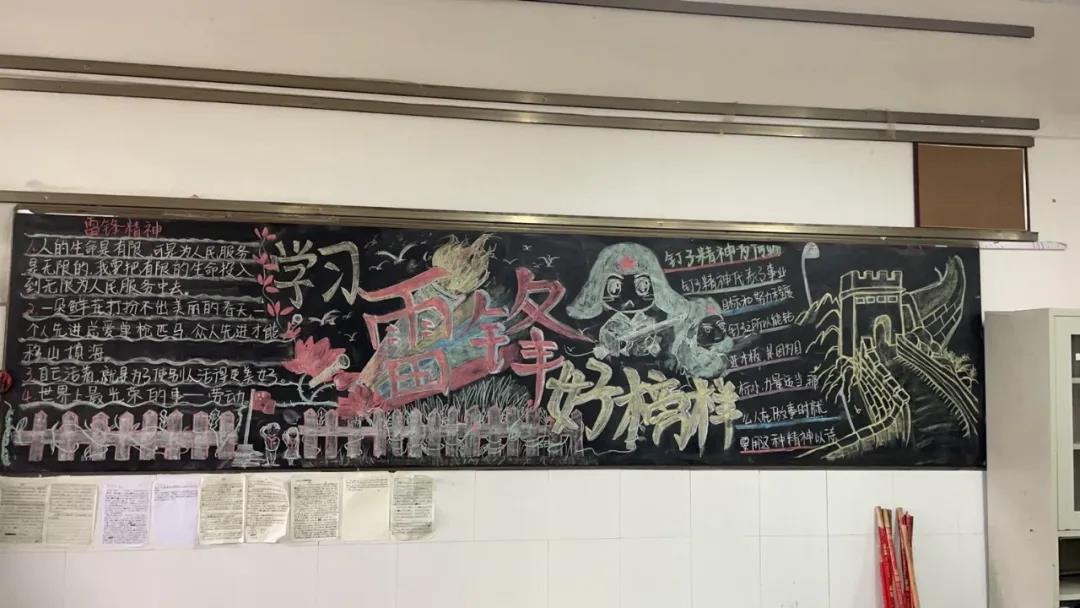 雷锋精神
1.人的生命是有限,可是为人民服务
是无限的,我要把有限的生命投入
到无限为人民服务中去
2.一朵鲜花打扮不出美丽的春天,一
个人先进总是单枪匹马,众人先进才能
移山填海
3.自己活着,就是为了使别人活得更美好
4.世界上最光荣的事——劳动
学习
雷锋
好榜样
钉子精神为何物
钉子精神代表了事业
目标和努力程度
钉子之所以能钻
木板,是因为目
标小,力量适当,那
么人在做事时就
要用这种精神以待